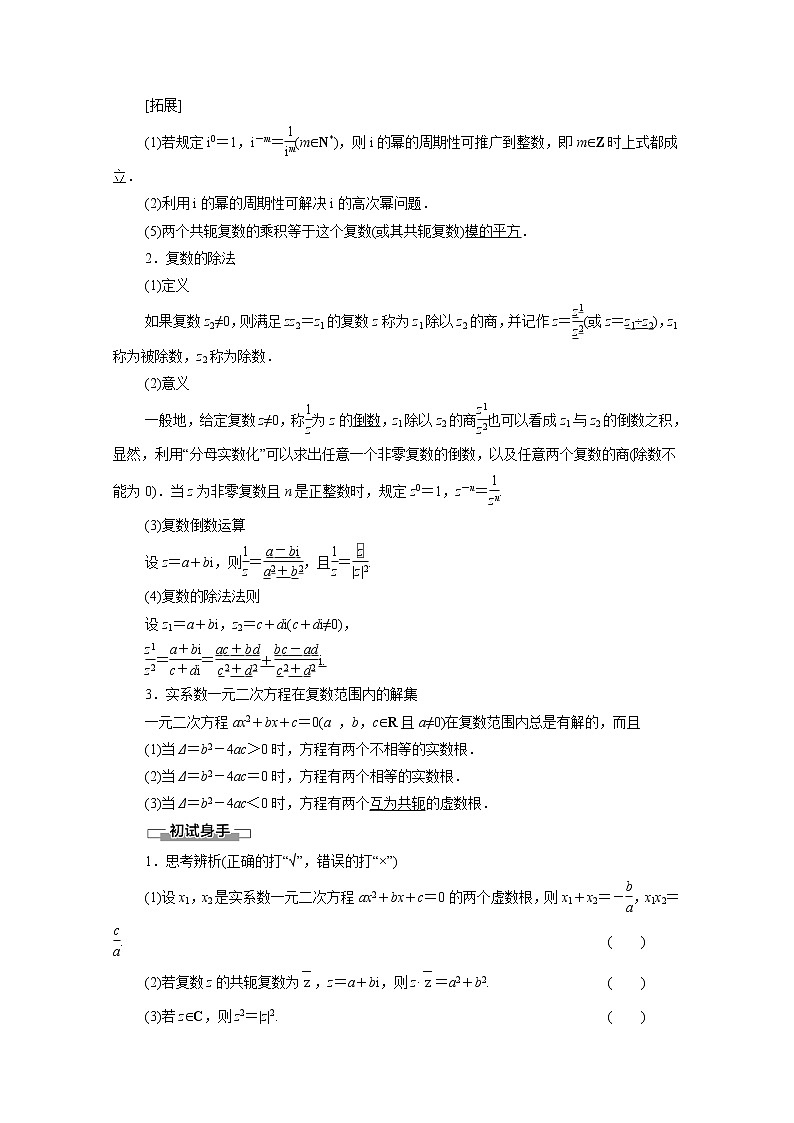 [拓展]
(1)若规定 i⁰＝1，i⁻ᵐ＝1/iᵐ(m∈N*)，则 i 的幂的周期性可推广到整数，即 m∈Z 时上式都成
立．
(2)利用 i 的幂的周期性可解决 i 的高次幂问题．
(5)两个共轭复数的乘积等于这个复数(或其共轭复数)模的平方．
2．复数的除法
(1)定义
如果复数 z₂≠0，则满足 zz₂＝z₁ 的复数 z 称为 z₁ 除以 z₂ 的商，并记作 z＝z1/z2(或 z＝z₁÷z₂)，z₁
称为被除数，z₂ 称为除数．
(2)意义
一般地，给定复数 z≠0，称1/z为 z 的倒数，z₁ 除以 z₂ 的商z1/z2也可以看成 z₁ 与 z₂ 的倒数之积，
显然，利用“分母实数化”可以求出任意一个非零复数的倒数，以及任意两个复数的商(除数不
能为 0)．当 z 为非零复数且 n 是正整数时，规定 z⁰＝1，z⁻ⁿ＝1/zⁿ.
(3)复数倒数运算
设 z＝a＋bi，则1/z＝(a－bi)/(a²＋b²)，且1/z＝z/|z|².
(4)复数的除法法则
设 z₁＝a＋bi，z₂＝c＋di(c＋di≠0)，
z1/z2＝(a＋bi)/(c＋di)＝(ac＋bd)/(c²＋d²)＋(bc－ad)/(c²＋d²)i.
3．实系数一元二次方程在复数范围内的解集
一元二次方程 ax²＋bx＋c＝0(a ，b，c∈R 且 a≠0)在复数范围内总是有解的，而且
(1)当 Δ＝b²－4ac＞0 时，方程有两个不相等的实数根．
(2)当 Δ＝b²－4ac＝0 时，方程有两个相等的实数根．
(3)当 Δ＝b²－4ac＜0 时，方程有两个互为共轭的虚数根．
初试身手
1．思考辨析(正确的打“√”，错误的打“×”)
(1)设 x₁，x₂ 是实系数一元二次方程 ax²＋bx＋c＝0 的两个虚数根，则 x₁＋x₂＝－b/a，x₁x₂＝
c/a. (　　)
(2)若复数 z 的共轭复数为 z̄，z＝a＋bi，则 z·z̄＝a²＋b². (　　)
(3)若 z∈C，则 z²＝|z|². (　　)